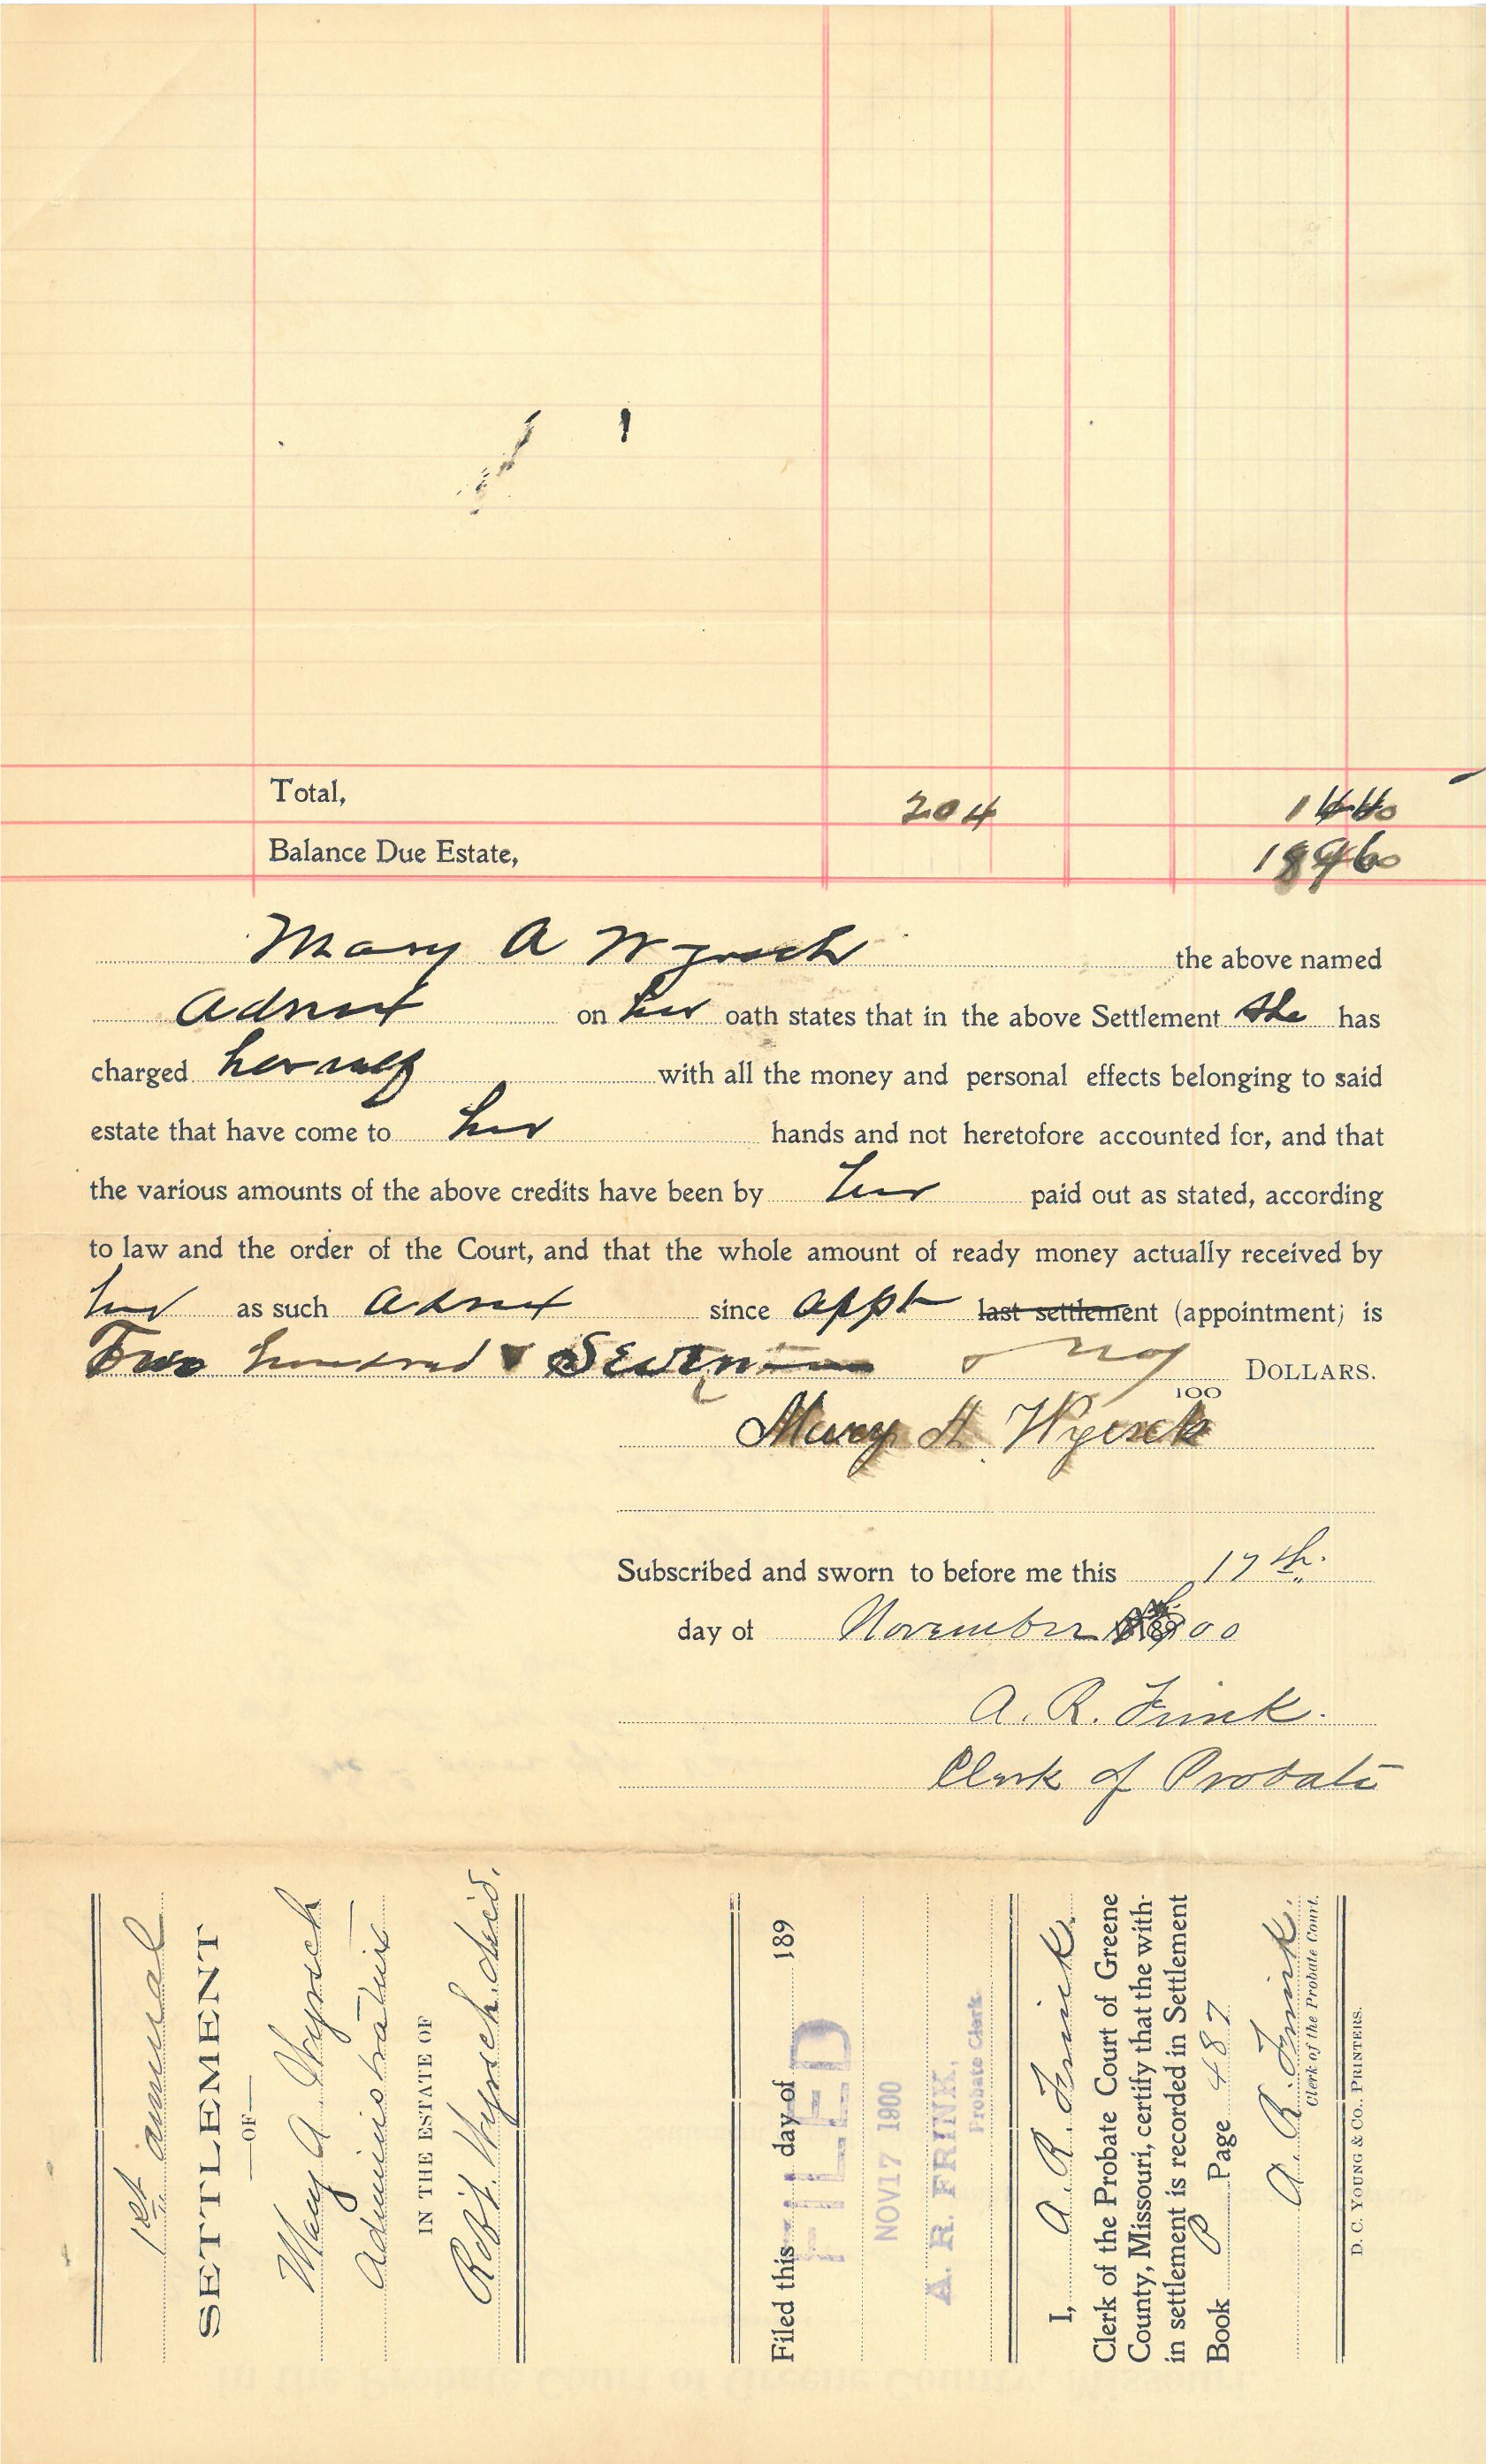 Total, 204
Balance Due Estate,
Mary A Wyrsch the above named
Admx on her oath states that in the above Settlement she has
charged herself with all the money and personal effects belonging to said
estate that have come to her hands and not heretofore accounted for, and that
the various amounts of the above credits have been by her paid out as stated, according
to law and the order of the Court, and that the whole amount of ready money actually received by
her as such Admx since appt last settlement (appointment) is
Two hundred & Seven & no/100 DOLLARS.
Mary A. Wyrsch
Subscribed and sworn to before me this 17th.
day of November 00
A. R. Frink.
Clerk of Probate
1st annual
SETTLEMENT
—OF—
Mary A Wyrsch
Administratrix
IN THE ESTATE OF
Robt. Wyrsch decd.
Filed this day of 189
FILED
NOV 17 1900
A. R. FRINK,
Probate Clerk.
I, A. R. Frink.
Clerk of the Probate Court of Greene
County, Missouri, certify that the with-
in settlement is recorded in Settlement
Book P Page 487
A. R. Frink.
Clerk of the Probate Court.
D. C. YOUNG & CO., PRINTERS.